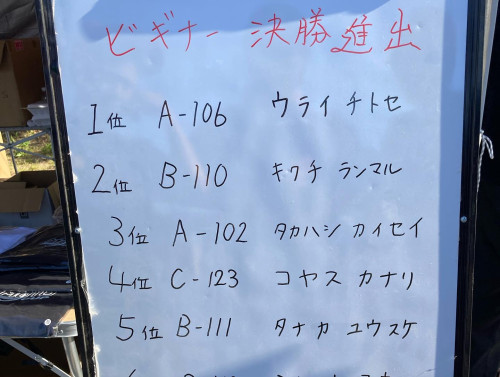 ビギナー 決勝進出
1位 A-106 ウライ チトセ
2位 B-110 キクチ ランマル
3位 A-102 タカハシ カイセイ
4位 C-123 コヤス カナリ
5位 B-111 タナカ ユウスケ